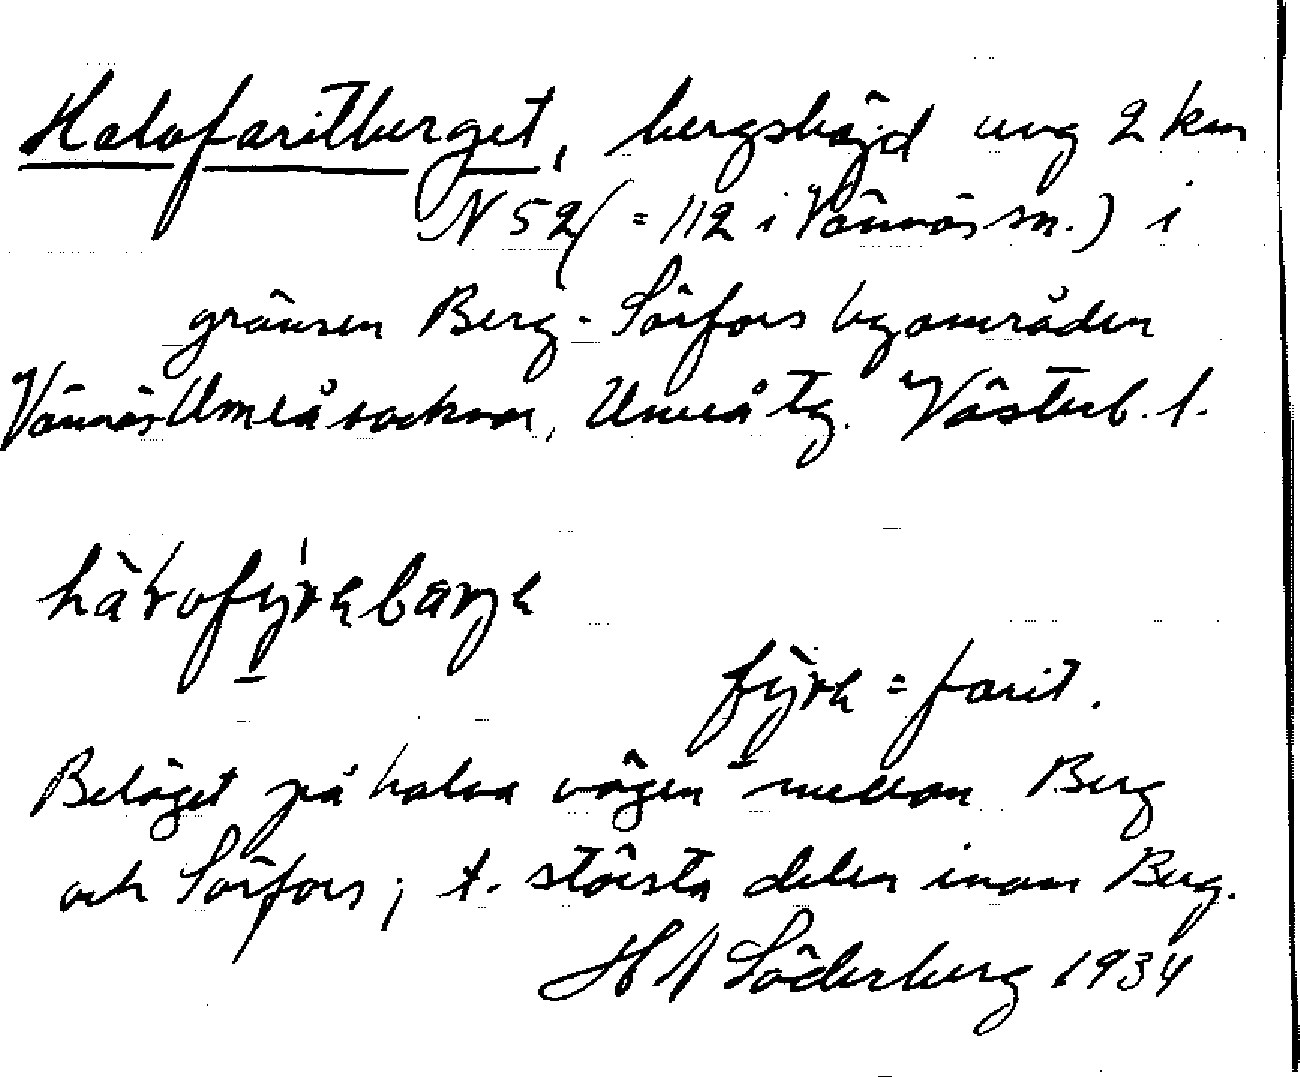 Halvfaritberget, bergshöjd ung 2 km
N 52 (= 112 i Vännäs sn.) i
gränsen Berg - Sörfors byområden
Vännäs Umeå socknar, Umeå tg. Västerb. l.
fỳrh = farit.
Beläget på halva vägen mellan Berg
och Sörfors; t. största delen inom Berg.
H A Söderberg 1934